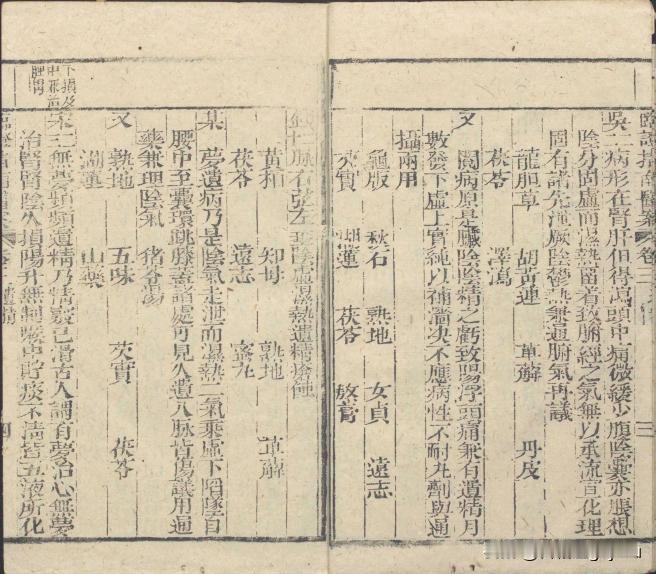 臨證指南醫案 卷三
吳二 病形在腎肝但得萬頭中痛微緩少腹陰囊亦脹想
陰分固虛而濕熱留着致腑經之氣無以承流宣化理
固有諸先洩厥陰鬱熱兼通腑氣再議
龍胆草 胡黃連 萆薢 丹皮
茯苓 澤瀉
又 閱病原是臟陰陰精之虧致陽浮頭痛兼有遺精月
數發下虛上實純以補濇決不應病性不耐丸劑與通
攝兩用
龜版 秋石 熟地 女貞 遠志
芡實 湖蓮 茯苓 熬膏
錢十 脉右弦左 至陰虛濕熱遺精瘡
黃柏 知母 熟地 萆薢
茯苓 遠志 蜜丸
某 夢遺病乃是陰氣走泄而濕熱二氣乘虛下陷墜自
腰中至囊環跳膝蓋諸處可見久遺八脉皆傷議用通
藥兼理陰氣 猪苓湯
又 熟地 五味 芡實 茯苓
湖蓮 山藥
下損及中兼治脾胃
某三 無夢頻頻遺精乃精竅已滑古人謂有夢治心無夢
治腎腎陰久損陽升無制喉中貯痰不清皆五液所化
臨證指南醫案 卷三 遺精 四